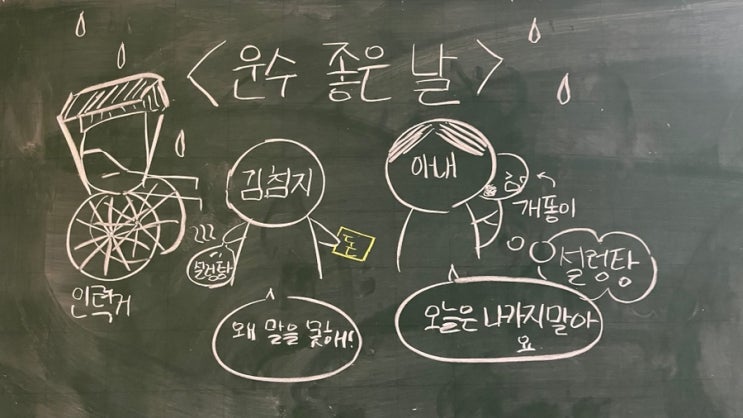 <운수 좋은 날>
김첨지
아내
개똥이
돈
설렁탕
설렁탕
인력거
왜 말을 못해!
오늘은 나가지말아
요